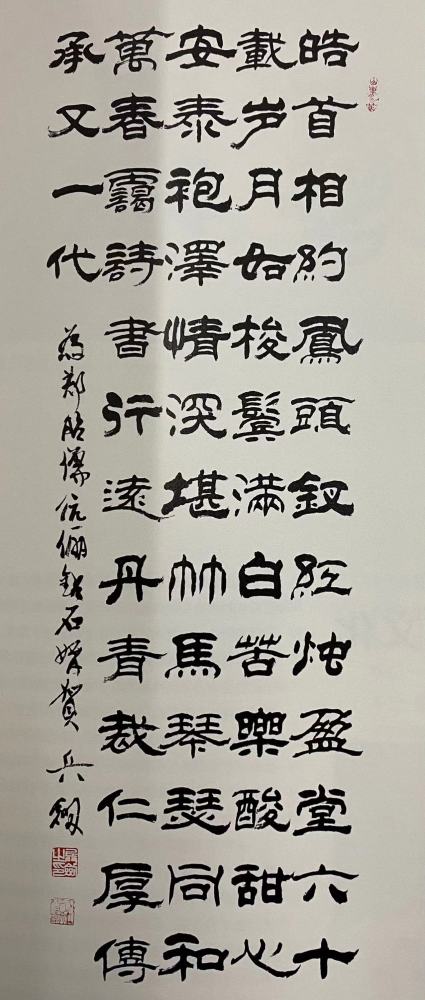 皓首相約鳳頭釵紅烛盈堂六十
載岁月如梭鬢滿白苦樂酸甜心
安泰袍澤情深堪竹馬琴瑟同和
萬春靄詩書行遠丹青裁仁厚傳
承又一代
為鄭儒伉儷鉆石婚賀 兵